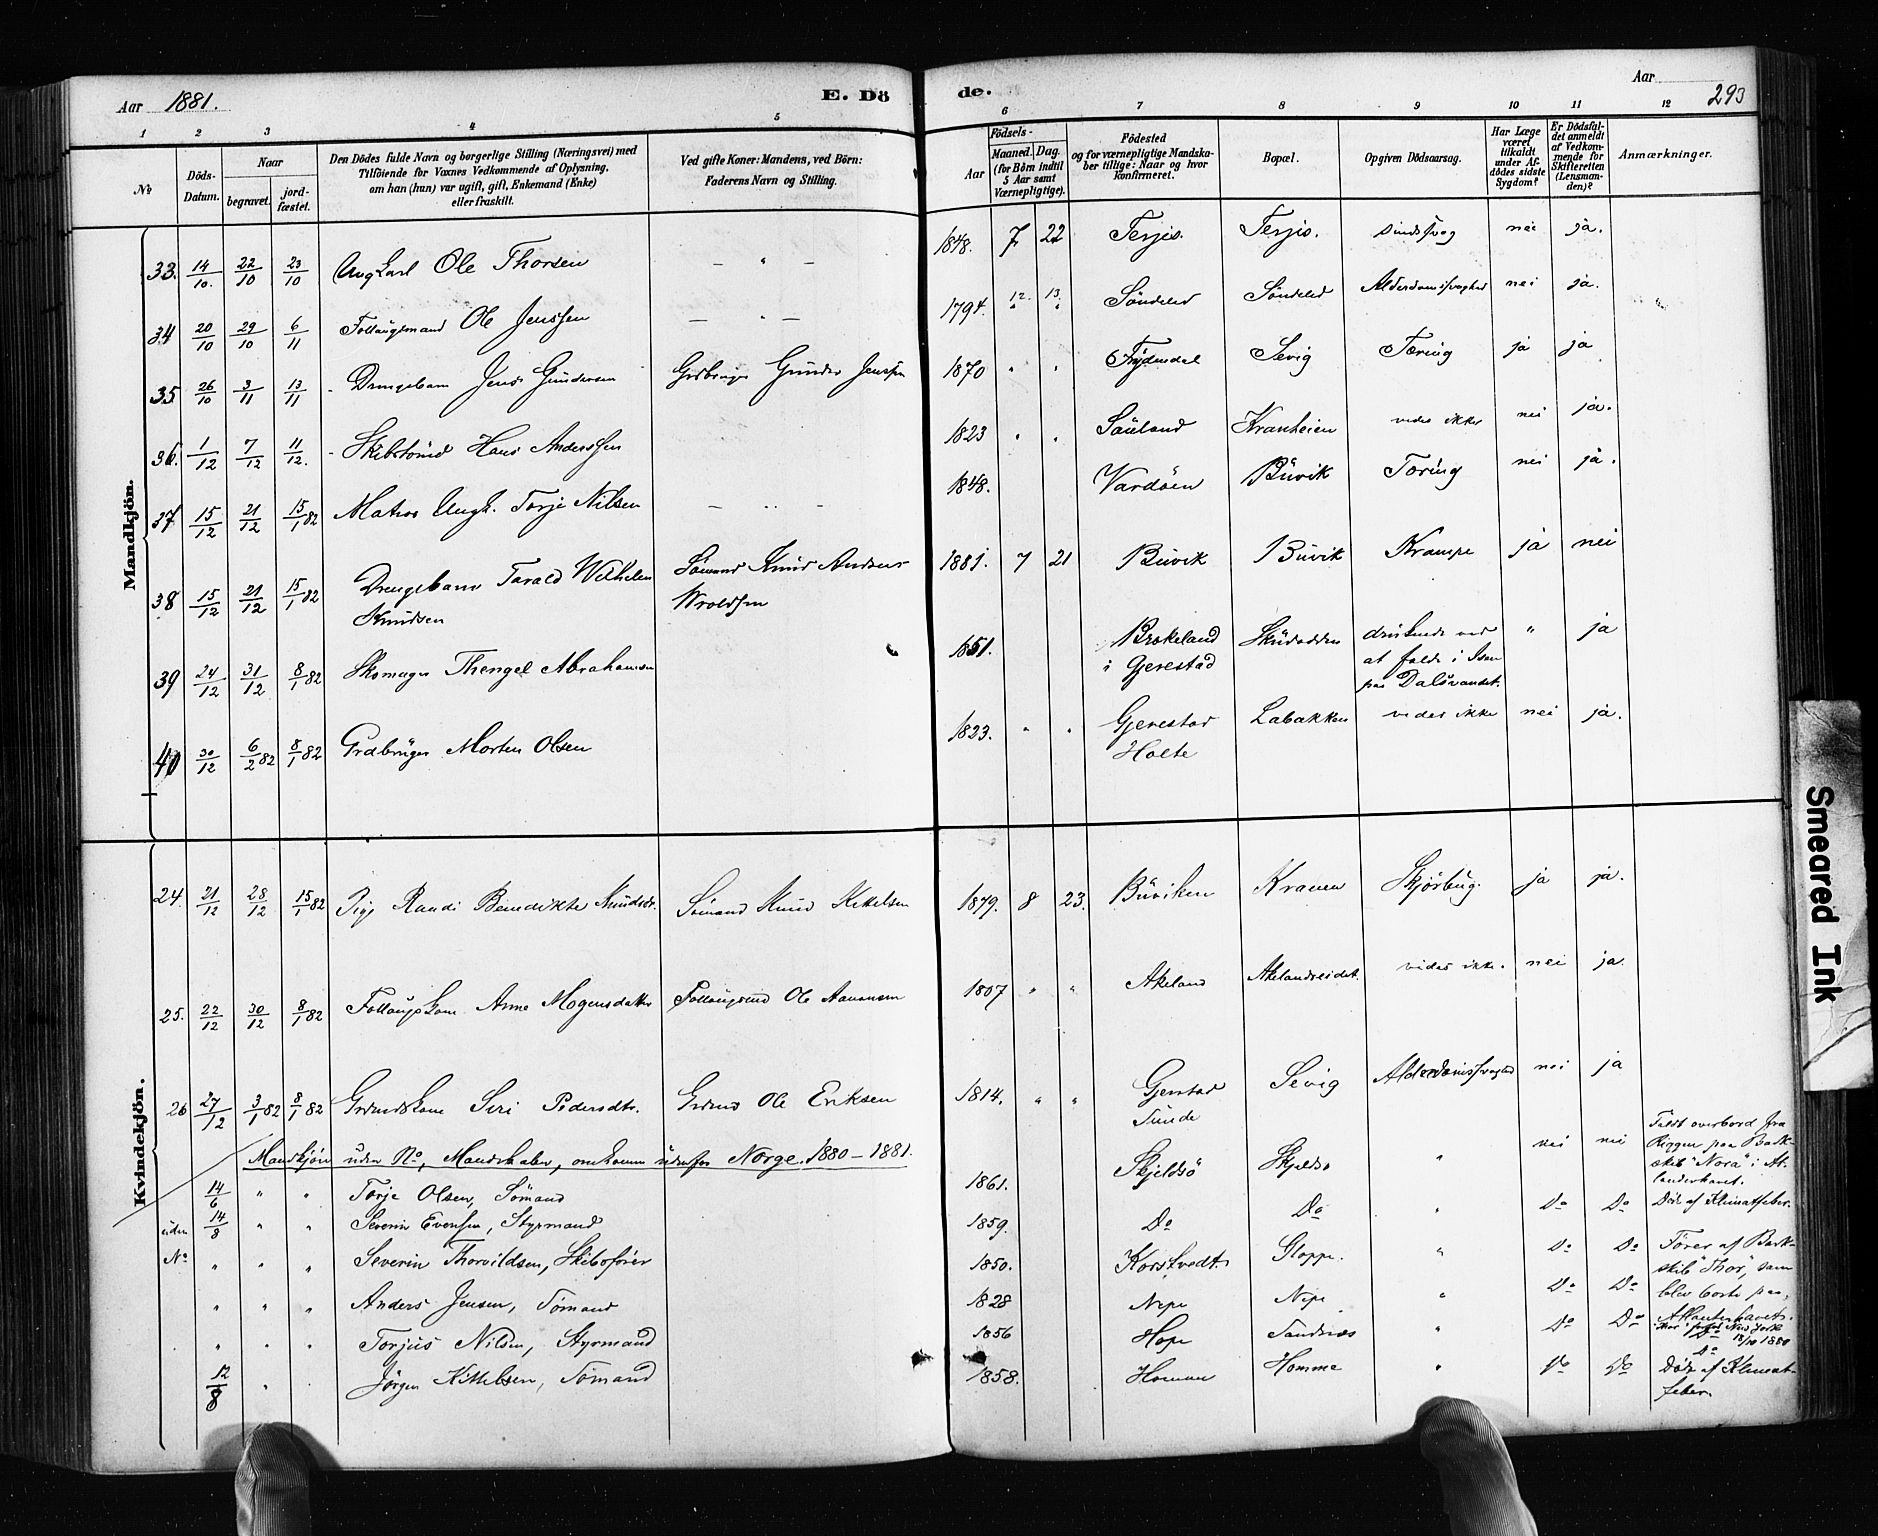 Aar 1881.
E. Dö
de.
Aar
293
1 2 3 4 5 6 7 8 9 10 11 12
No
Döds-Datum.
Naar
begravet.
jord-fæstet.
Den Dödes fulde Navn og borgerlige Stilling (Næringsvei) med
Tilföiende for Voxnes Vedkommende af Oplysning,
om han (hun) var ugift, gift, Enkemand (Enke)
eller fraskilt.
Ved gifte Koner: Mandens, ved Börn:
Faderens Navn og Stilling.
Aar
Födsels-
Maaned. Dag.
(for Börn indtil
5 Aar samt
Værnepligtige).
Födested
og for værnepligtige Mandska-
ber tillige: Naar og hvor
konfirmeret.
Bopæl.
Opgiven Dödsaarsag.
Har Læge
været
tilkaldt
under Af-
dödes sidste
Sygdom?
Er Dödsfal-
det anmeldt
af Vedkom-
mende for
Skifteretten
(Lensman-
den)?
Anmærkninger.
Mandkjön.
33. 14/10. 22/10 23/10 Ungkarl Ole Thorsen — " — 1848. 7 22 Terjis. Terjis. nei ja.
34 20/10 29/10 6/11 Ole Jenssen — " — 1794. 12. 13. Söndeled Söndeled nei ja.
35 26/10 3/11 13/11 Drengebarn Jens Gundersen Gdbruger Gunder Jenssen 1870 " " Sevig Tæring ja ja
36. 1/12 7/12 11/12. Hans Anderssen 1823 " " Sauland Kranheien vides ikke nei ja.
37 15/12 21/12 15/1 82 Matros Ungk. Torje Nilsen — " — 1848. Vardöen Buvik Tæring nei ja.
38 15/12 21/12 15/1 82 Drengebarn Tarald Wilhelm
Knudsen
Sömand Knud Anders
Wroldsen
1881. 7 21 Buvik Buvik Krampe ja nei
39 24/12 31/12 8/1 82 Skomager Thengel Abrahamsen 1851. Brokeland
i Gjerestad
druknede ved
at falde i Isen
paa Dalsvandet.
" ja
40 30/12 6/2 82 8/1 82 Grdbruger Morten Olsen 1823. " " Gjerestad
Holte
Labakken vides ikke nei ja.
Kvindekjön.
24. 21/12 28/12 15/1 82 Pige Randi Benedikte Knudsdr. Sömand Knud Kittelsen 1879. 8 23. Buviken Kranen Skjörbug. ja ja.
25. 22/12 30/12 8/1 82 Anne Mogensdatter Ole Aanonsen 1807 " " Akeland Akelandseidet vides ikke. nei ja.
26 27/12 3/1 82 8/1 82 Siri Pedersdtr. Ole Eriksen 1814. " " Gjerstad
Sunde
Sevig nei ja
Mandkjön uden No, Mandskaber, omkomne udenfor Norge. 1880–1881.
uden
No
14/6 " " Torje Olsen, Sömand 1861. Skjeldsö Skjeldsö " nei nei
Faldt overbord fra
Riggen paa Bark-
skib "Nora" i At-
lanterhavet.
14/8 " " Severin Evensen, Styrmand 1859. Do Do " Do Do Död af Klimatfeber.
" " " Severin Thorvildsen, Skibsförer 1850. Korstvedt Gloppe. " Do Do
Förer af Bark-
skib "Thor", som
blev borte paa
Atlanterhavet.
" " " Anders Jensen, Sömand 1828 Nipe Nipe " Do Do
" " " Torjus Nilsen, Styrmand 1856 Hope Sandnæs " Do Do Do
12/8 " Jörgen Kittelsen, Sömand 1858. Homme " Do Do Död af Klimat-
feber.
Smeared Ink